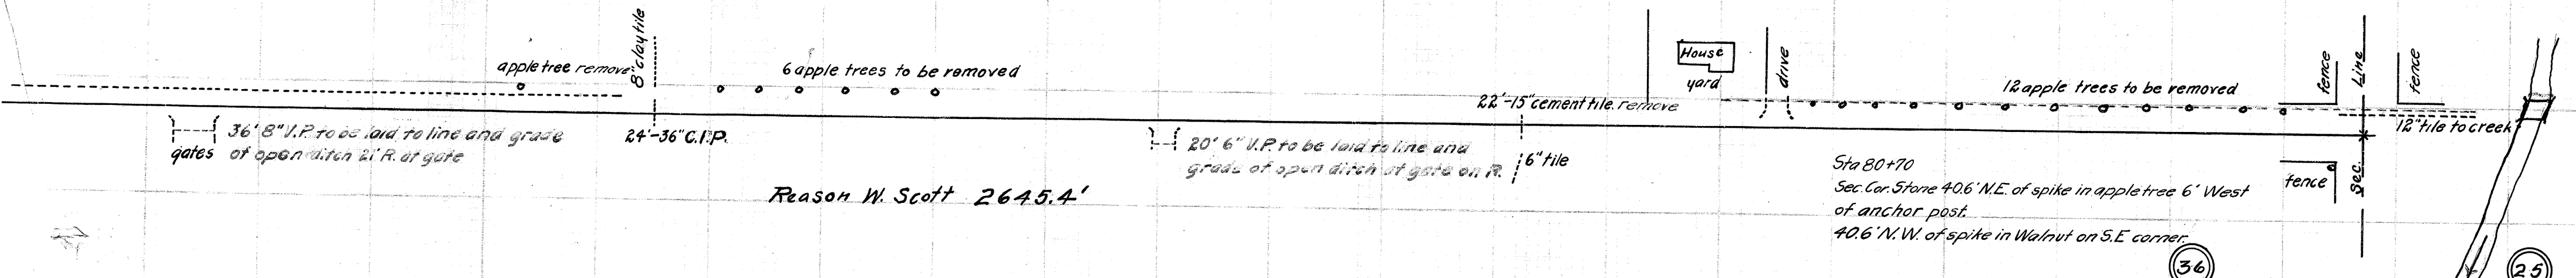 apple tree remove
8" clay tile
6 apple trees to be removed
House
yard
drive
22'-15" cement tile. remove
12 apple trees to be removed
fence
Line
fence
12" tile to creek
gates
36' 8" V.P. to be laid to line and grade
of open ditch 21' R. at gate
24'-36" C.I.P.
20' 6" V.P. to be laid to line and
grade of open ditch at gate on R.
6" tile
Reason W. Scott 2645.4'
Sta 80+70
Sec. Cor. Stone 40.6' N.E. of spike in apple tree 6' West
of anchor post.
40.6' N.W. of spike in Walnut on S.E corner.
fence
Sec.
36
25